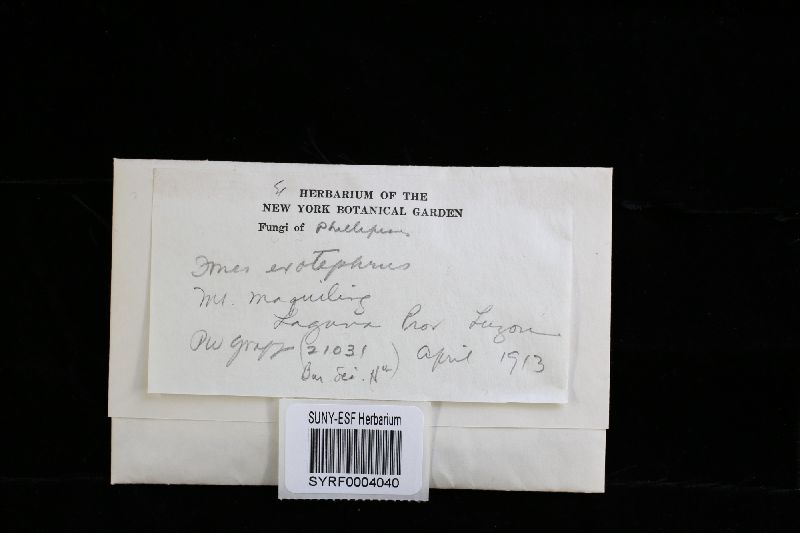 HERBARIUM OF THE
NEW YORK BOTANICAL GARDEN
Fungi of
Fomes exotephrus
Mt. Maquiling
Laguna Prov Luzon
PW Graff (21031 April 1913
Bur Sci. Hb)
SUNY-ESF Herbarium
SYRF0004040